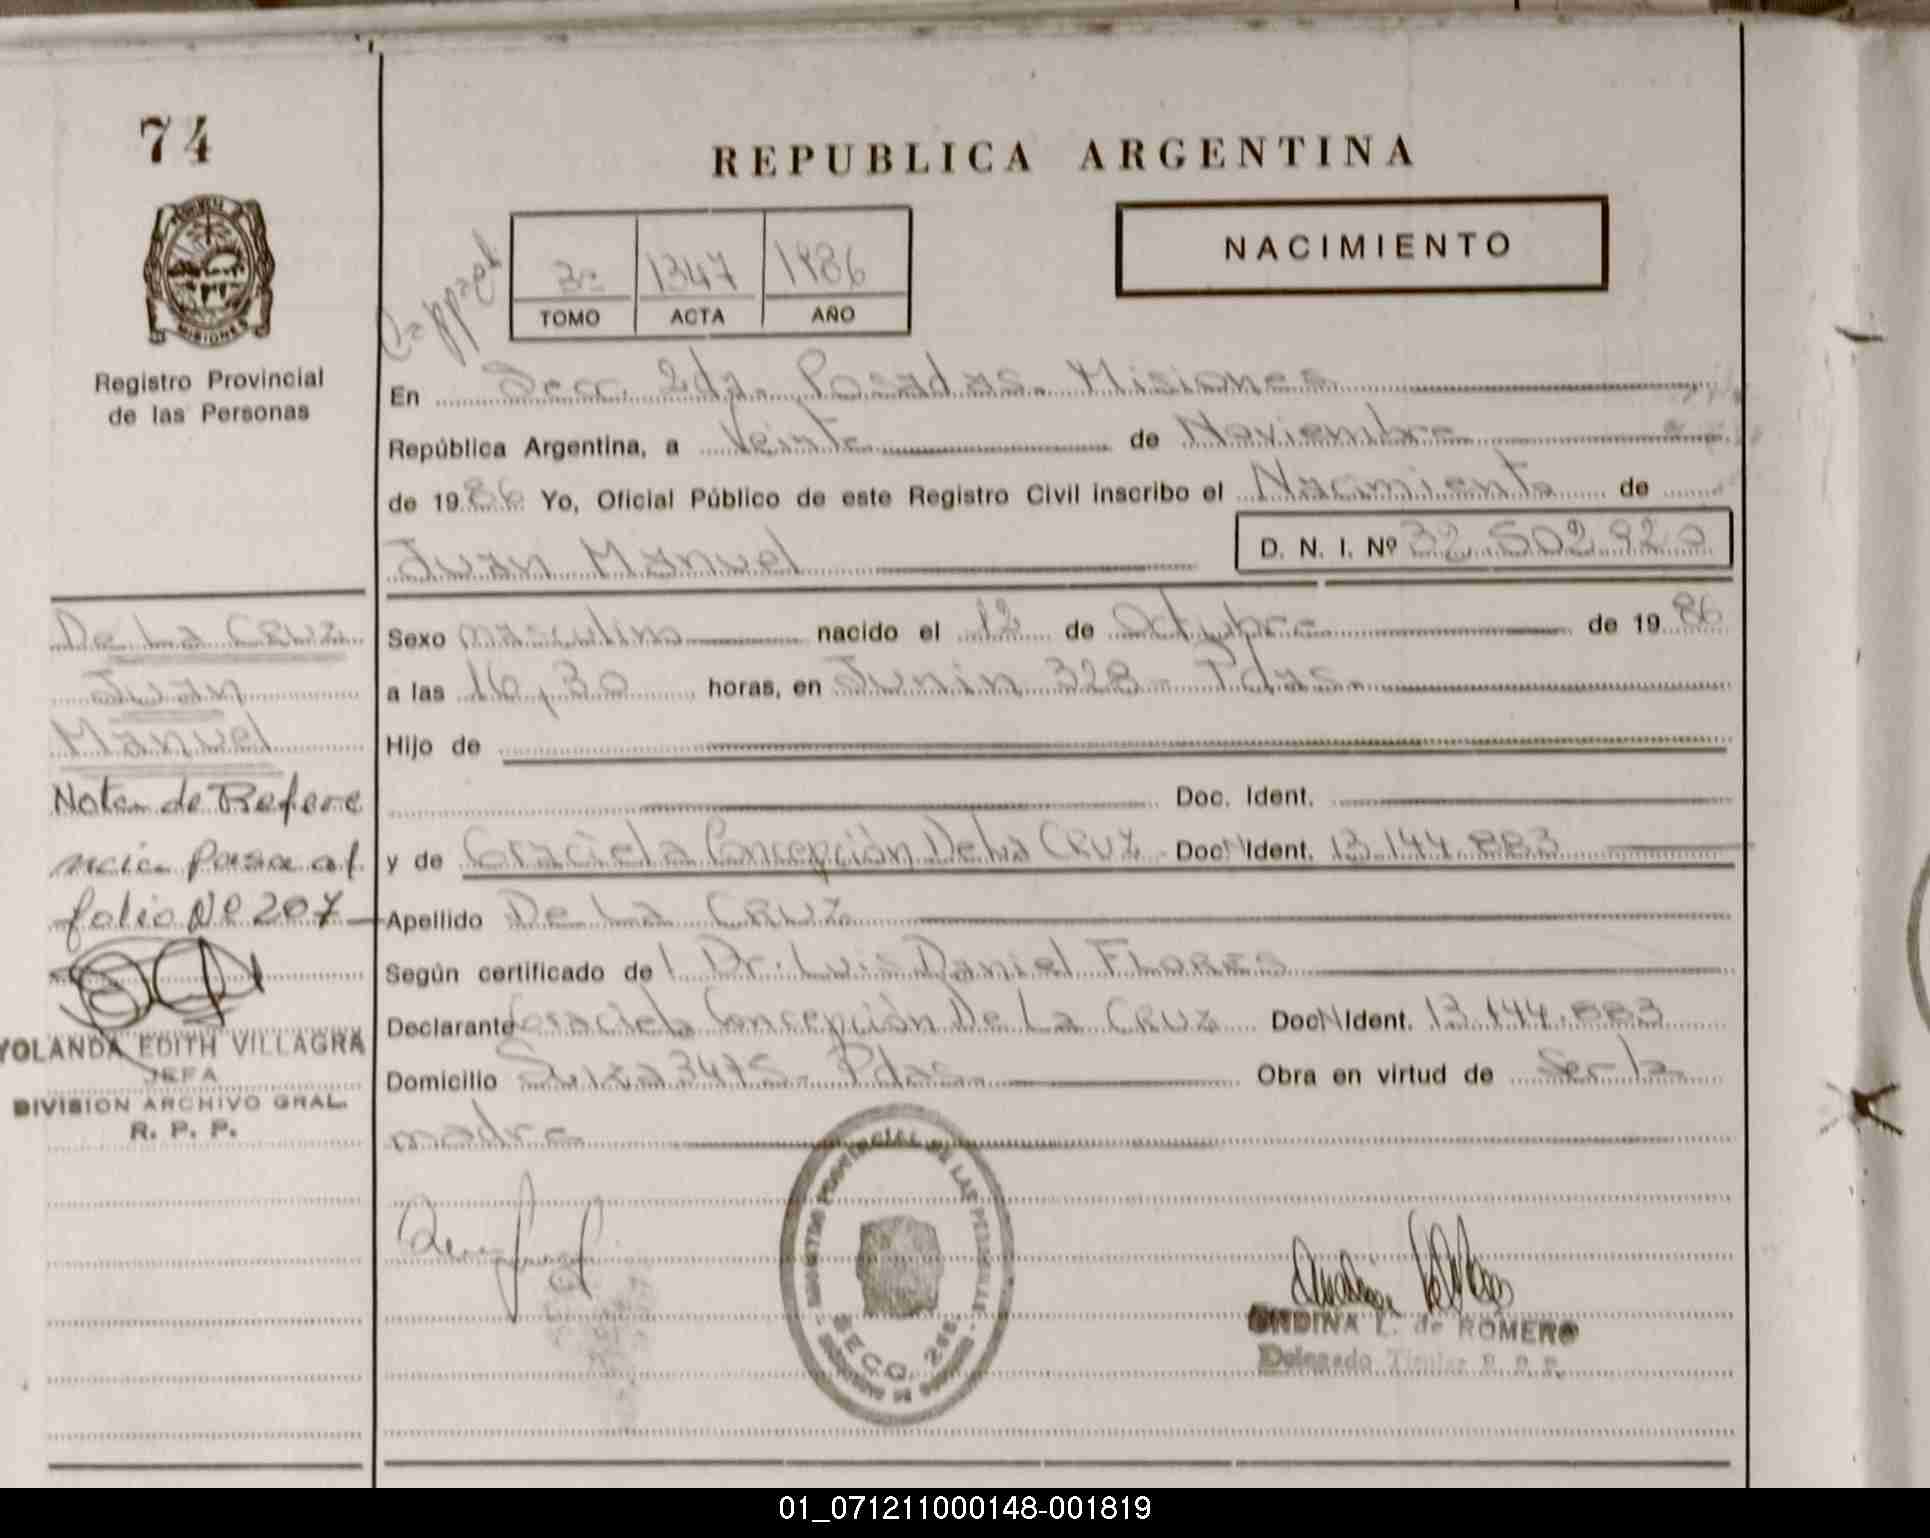 74
REPUBLICA ARGENTINA
NACIMIENTO
1347 1986
TOMO ACTA AÑO
MISIONES
Registro Provincial
de las Personas
En Secc. 2da. Posadas. Misiones
República Argentina, a Veinte de Noviembre
de 1986 Yo, Oficial Público de este Registro Civil inscribo el Nacimiento de
Juan Manuel D. N. I. Nº 32.502.920
De La Cruz
Juan
Manuel
Nota de Refere
ncia pasa al
folio Nº 207
YOLANDA EDITH VILLAGRA
JEFA
DIVISION ARCHIVO GRAL.
R. P. P.
Sexo masculino nacido el 12 de Octubre de 1986
a las 16,30 horas, en Junin 328 - Pdas.
Hijo de
Doc. Ident.
y de Graciela Concepción De La Cruz Doc. Ident. 13.144.883
Apellido De La Cruz
Según certificado del Dr. Luis Daniel Flores
Declarante Graciela Concepción De La Cruz Doc. Ident. 13.144.883
Domicilio Suiza 3475 - Pdas. Obra en virtud de Ser la
madre
REGISTRO PROVINCIAL DE LAS PERSONAS
SECC.
ONDINA L. de ROMERO
Delegado Titular R. P. P.
01_071211000148-001819